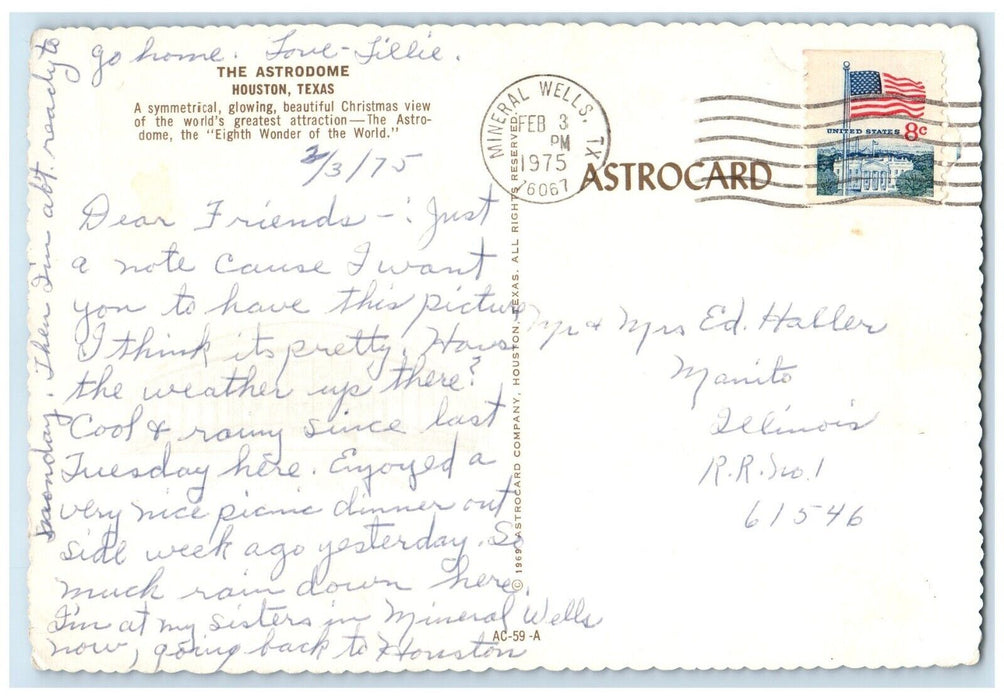 go home. Love - Lillie.
THE ASTRODOME
HOUSTON, TEXAS
A symmetrical, glowing, beautiful Christmas view
of the world's greatest attraction—The Astro-
dome, the "Eighth Wonder of the World."
2/3/75
Dear Friends -: Just
a note cause I want
you to have this picture
I think its pretty. Hows
the weather up there?
Cool & rainy since last
Tuesday here. Enjoyed a
very nice picnic dinner out
side week ago yesterday. So
much rain down here.
I'm at my sisters in Mineral Wells
now, going back to Houston
monday. Then I'm abt. ready to
© 1969 ASTROCARD COMPANY, HOUSTON, TEXAS. ALL RIGHTS RESERVED.
AC-59-A
MINERAL WELLS, TX
FEB 3
PM
1975
76067
ASTROCARD
UNITED STATES 8c
Mr & Mrs Ed. Haller
Manito
Illinois
R.R. No. 1
61546